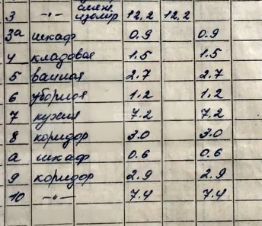 смеж.
3 -"- изолир 12,2 12,2
3а шкаф 0.9 0.9
4 кладовая 1.5 1.5
5 ванная 2.7 2.7
6 уборная 1.2 1.2
7 кухня 7.2 7.2
8 коридор 3.0 3.0
а шкаф 0.6 0.6
9 коридор 2.9 2.9
10 -"- 7.4 7.4